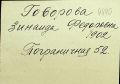 Говорова
Зинаида Федоровна
Пограничная 52